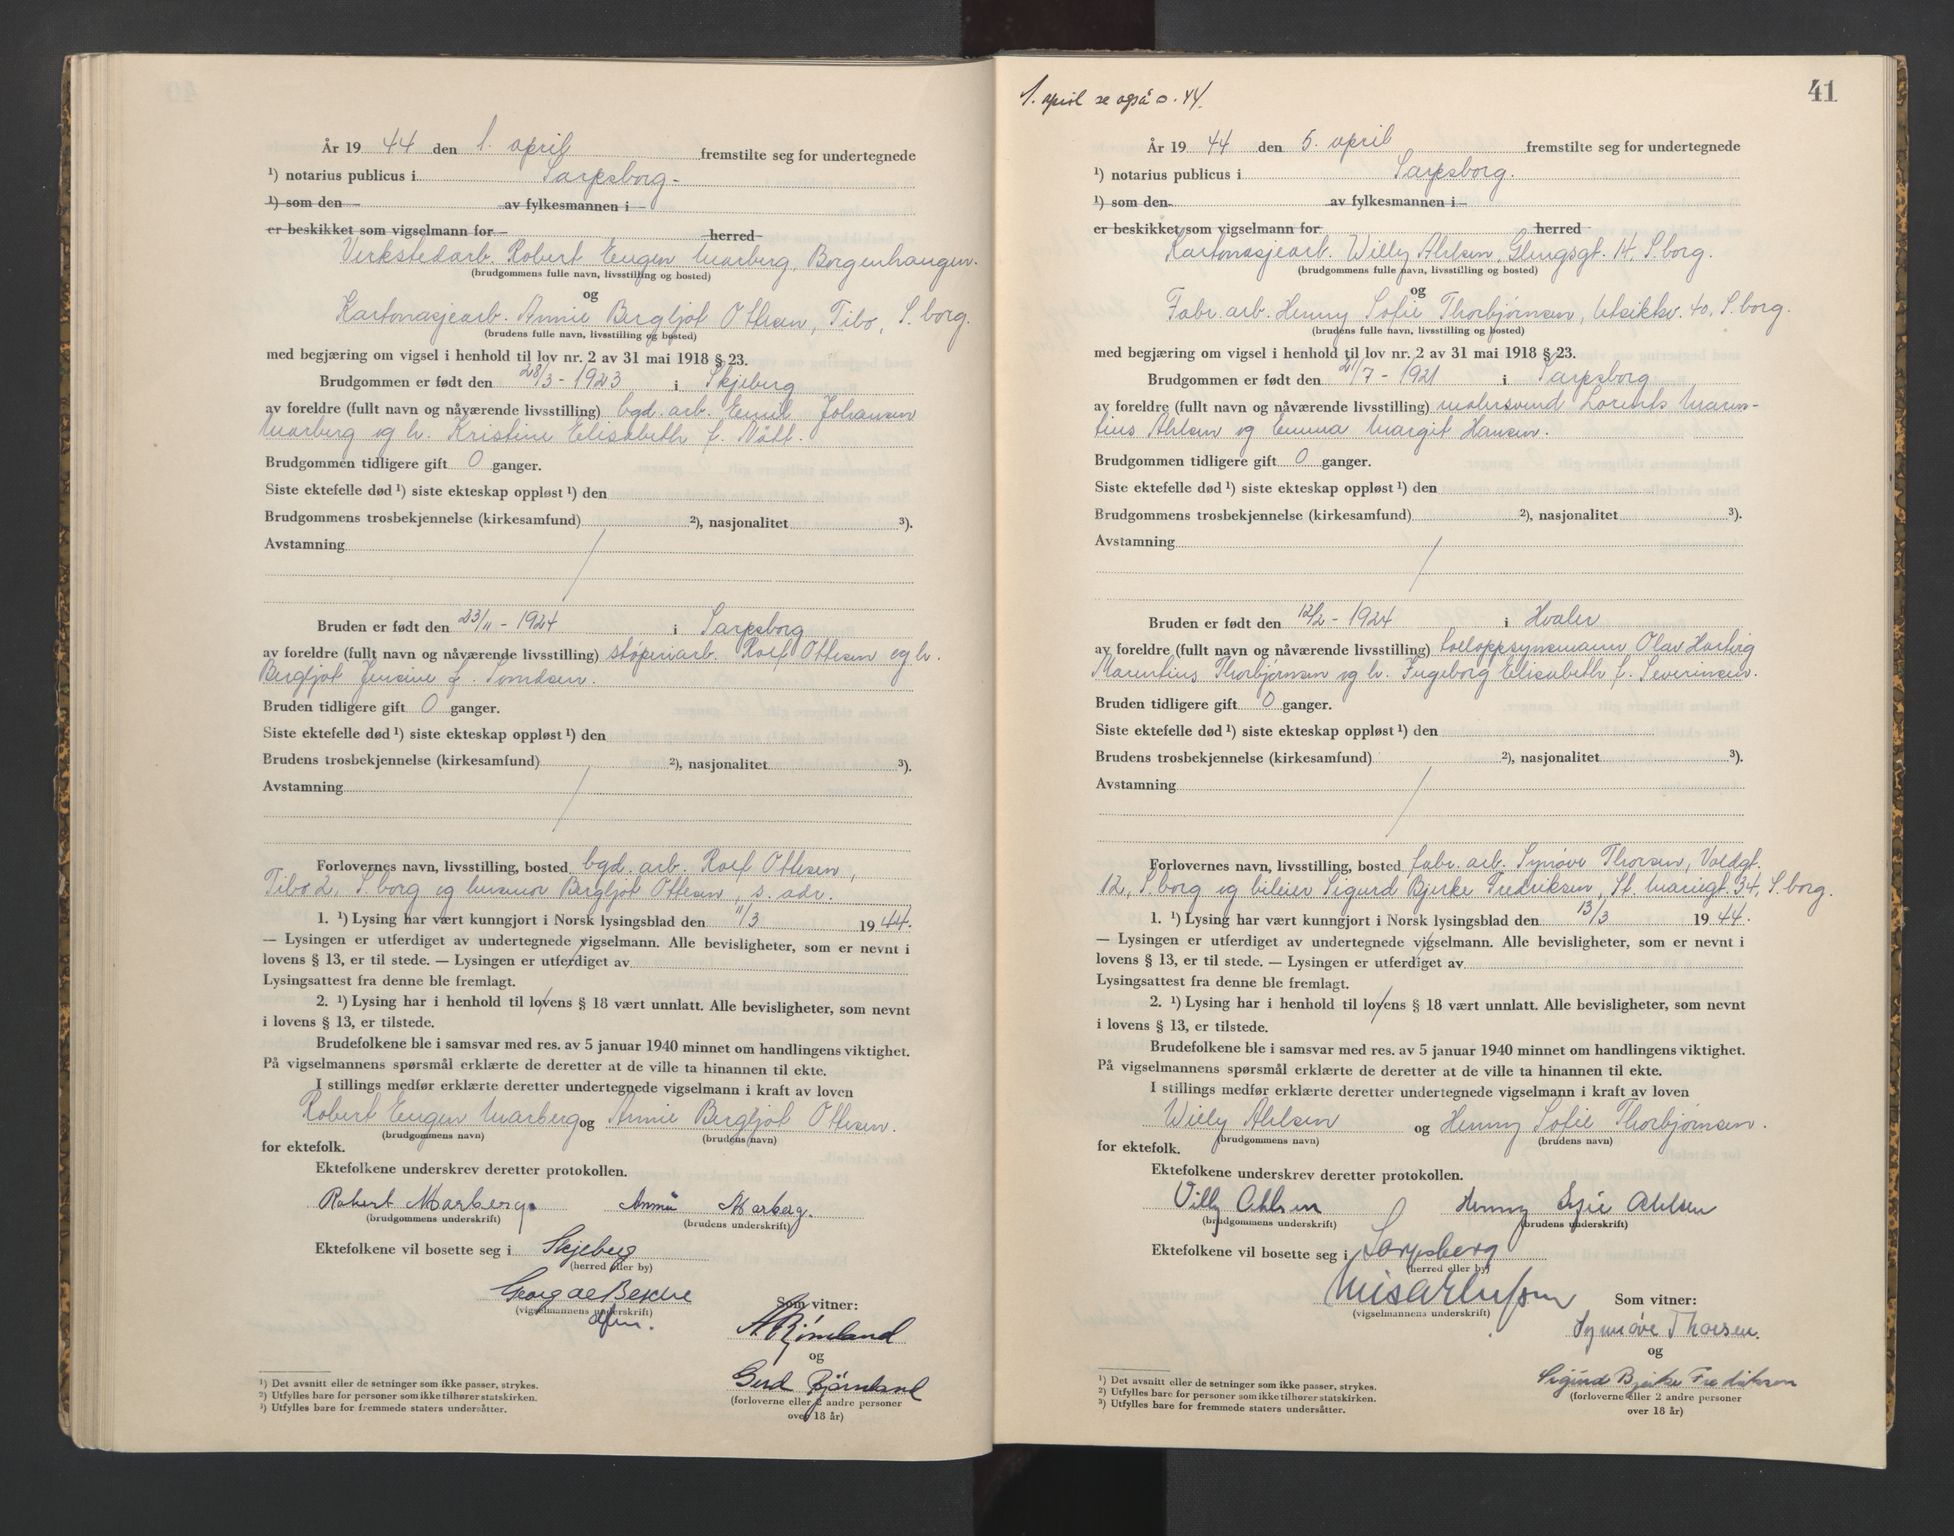 År 19 44 den 1. april fremstilte seg for undertegnede
¹) notarius publicus i Sarpsborg-
¹) som den – av fylkesmannen i –
er beskikket som vigselmann for – herred –
Verkstedarb. Robert Eugen Marberg, Borgenhaugen.
(brudgommens fulle navn, livsstilling og bosted)
og
Kartonasjearb. Annie Bergljot Ottesen, Tibo, S.borg.
(brudens fulle navn, livsstilling og bosted)
med begjæring om vigsel i henhold til lov nr. 2 av 31 mai 1918 § 23.
Brudgommen er født den 28/3 - 1923 i Skjeberg
av foreldre (fullt navn og nåværende livsstilling) bgd. arb. Emil Johansen
Marberg og h. Kristine Elisabeth f. Nått.
Brudgommen tidligere gift 0 ganger.
Siste ektefelle død ¹) siste ekteskap oppløst ¹) den
Brudgommens trosbekjennelse (kirkesamfund) ²), nasjonalitet ³).
Avstamning /
Bruden er født den 23/11 - 1924 i Sarpsborg
av foreldre (fullt navn og nåværende livsstilling) støperiarb. Rolf Ottesen og h.
Bergljot Jensine f.
Bruden tidligere gift 0 ganger.
Siste ektefelle død ¹) siste ekteskap oppløst ¹) den
Brudens trosbekjennelse (kirkesamfund) ²), nasjonalitet ³).
Avstamning /
Forlovernes navn, livsstilling, bosted bgd. arb. Rolf Ottesen,
Tibo 2, S.borg og husmor Bergljot Ottesen, s. adr.
1. ¹) Lysing har vært kunngjort i Norsk lysingsblad den 11/3 19 44.
— Lysingen er utferdiget av undertegnede vigselmann. Alle bevisligheter, som er nevnt i
lovens § 13, er til stede. — Lysingen er utferdiget av
Lysingsattest fra denne ble fremlagt.
2. ¹) Lysing har i henhold til lovens § 18 vært unnlatt. Alle bevisligheter, som nevnt
i lovens § 13, er tilstede.
Brudefolkene ble i samsvar med res. av 5 januar 1940 minnet om handlingens viktighet.
På vigselmannens spørsmål erklærte de deretter at de ville ta hinannen til ekte.
I stillings medfør erklærte deretter undertegnede vigselmann i kraft av loven
Robert Eugen Marberg og Annie Bergljot Ottesen.
(brudgommens navn) (brudens navn)
for ektefolk.
Ektefolkene underskrev deretter protokollen.
Robert Marberg. Annie Marberg.
(brudgommens underskrift) (brudens underskrift)
Ektefolkene vil bosette seg i Skjeberg
(herred eller by)
Georg
(vigselmannens underskrift)
Som vitner:
A Bjørnland
og
Gerd Bjørnland
(forloverne eller 2 andre personer
over 18 år)
¹) Det avsnitt eller de setninger som ikke passer, strykes.
²) Utfylles bare for personer som ikke tilhører statskirken.
³) Utfylles bare for fremmede staters undersåtter.
1. april se også s. 44.
41
År 19 44 den 5. april fremstilte seg for undertegnede
¹) notarius publicus i Sarpsborg.
¹) som den – av fylkesmannen i –
er beskikket som vigselmann for herred –
Kartonasjearb. Willy Ahlsen, Glengsgt. 14, S.borg.
(brudgommens fulle navn, livsstilling og bosted)
og
Fabr. arb. Henny Sofie Thorbjørnsen, Utsiktsv. 40, S.borg.
(brudens fulle navn, livsstilling og bosted)
med begjæring om vigsel i henhold til lov nr. 2 av 31 mai 1918 § 23.
Brudgommen er født den 21/7 - 1921 i Sarpsborg
av foreldre (fullt navn og nåværende livsstilling) malersvend Lorents Maren-
tius Ahlsen og Emma Margit Hansen.
Brudgommen tidligere gift 0 ganger.
Siste ektefelle død ¹) siste ekteskap oppløst ¹) den
Brudgommens trosbekjennelse (kirkesamfund) ²), nasjonalitet ³).
Avstamning /
Bruden er født den 12/2 - 1924 i Hvaler
av foreldre (fullt navn og nåværende livsstilling) tolloppsynsmann Olav Hartvig
Marentius Thorbjørnsen og h. Ingeborg Elisabeth f. Severinsen.
Bruden tidligere gift 0 ganger.
Siste ektefelle død ¹) siste ekteskap oppløst ¹) den
Brudens trosbekjennelse (kirkesamfund) ²), nasjonalitet ³).
Avstamning /
Forlovernes navn, livsstilling, bosted fabr. arb. Synøve Thorsen, Voldgt.
12, S.borg og bileier Sigurd Bjerke Fredriksen, St. Mariegt. 34, S.borg.
1. ¹) Lysing har vært kunngjort i Norsk lysingsblad den 13/3 19 44.
— Lysingen er utferdiget av undertegnede vigselmann. Alle bevisligheter, som er nevnt i
lovens § 13, er til stede. — Lysingen er utferdiget av
Lysingsattest fra denne ble fremlagt.
2. ¹) Lysing har i henhold til lovens § 18 vært unnlatt. Alle bevisligheter, som nevnt
i lovens § 13, er tilstede.
Brudefolkene ble i samsvar med res. av 5 januar 1940 minnet om handlingens viktighet.
På vigselmannens spørsmål erklærte de deretter at de ville ta hinannen til ekte.
I stillings medfør erklærte deretter undertegnede vigselmann i kraft av loven
Willy Ahlsen og Henny Sofie Thorbjørnsen.
(brudgommens navn) (brudens navn)
for ektefolk.
Ektefolkene underskrev deretter protokollen.
Villy Ahlsen Henny Sofie Ahlsen
(brudgommens underskrift) (brudens underskrift)
Ektefolkene vil bosette seg i Sarpsborg
(herred eller by)
(vigselmannens underskrift)
Som vitner:
Synnøve Thorsen.
og
Sigurd Bjerke Fredriksen
(forloverne eller 2 andre personer
over 18 år)
¹) Det avsnitt eller de setninger som ikke passer, strykes.
²) Utfylles bare for personer som ikke tilhører statskirken.
³) Utfylles bare for fremmede staters undersåtter.